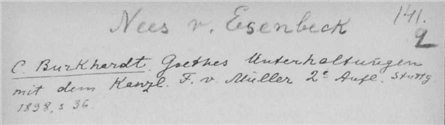 Nees v. Esenbeck
141.
2
C. Burkhardt. Goethes Unterhaltungen
mit dem Kanzl. F. v. Müller 2e Aufl. Stuttg
1898, s 36.